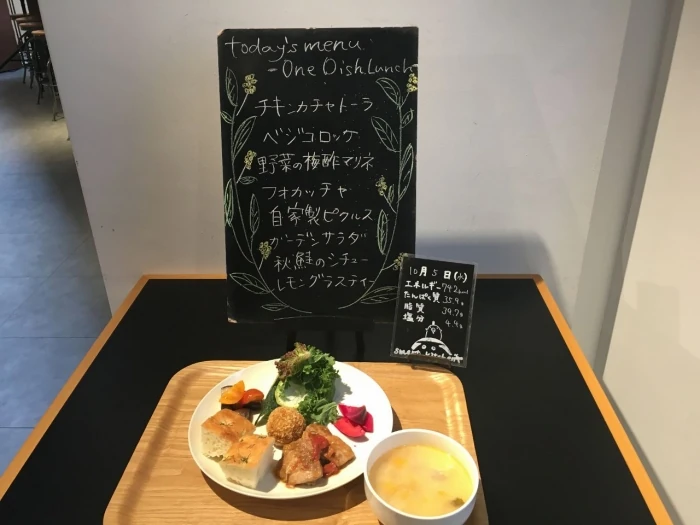 today's menu
-One Dish Lunch
チキンカチャトーラ
ベジコロッケ
野菜の梅酢マリネ
フォカッチャ
自家製ピクルス
ガーデンサラダ
秋鮭のシチュー
レモングラスティー
10月5日(水)
エネルギー742kcal
たんぱく質 35.9g
脂質 39.7g
塩分 4.9g